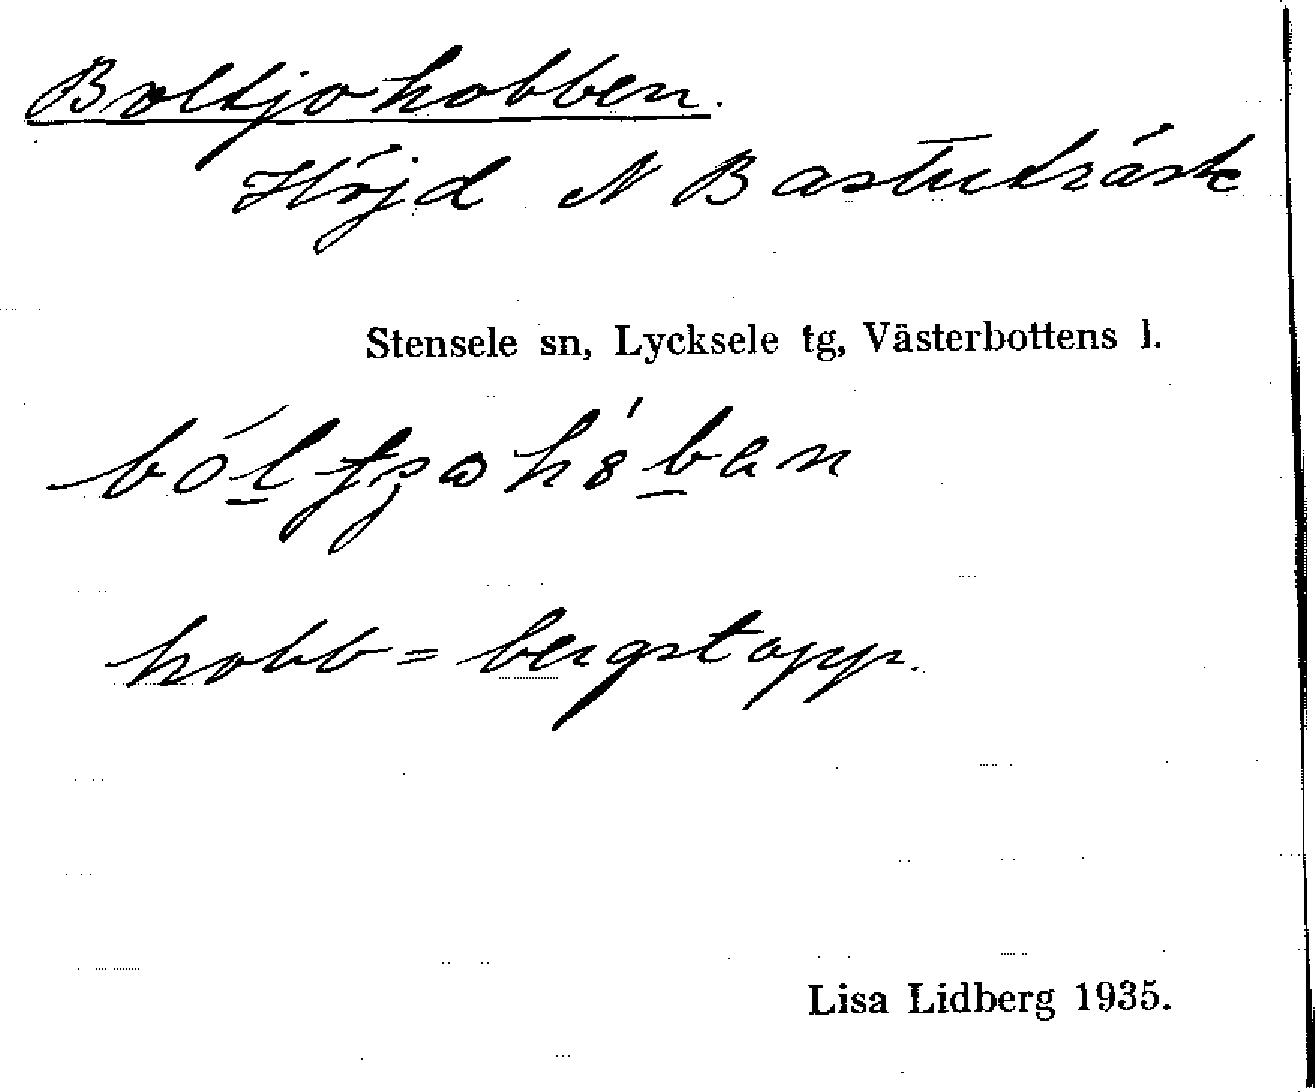 Boltjohobben.
Höjd N Bastuträsk
Stensele sn, Lycksele tg, Västerbottens l.
hobb = bergstopp.
Lisa Lidberg 1935.